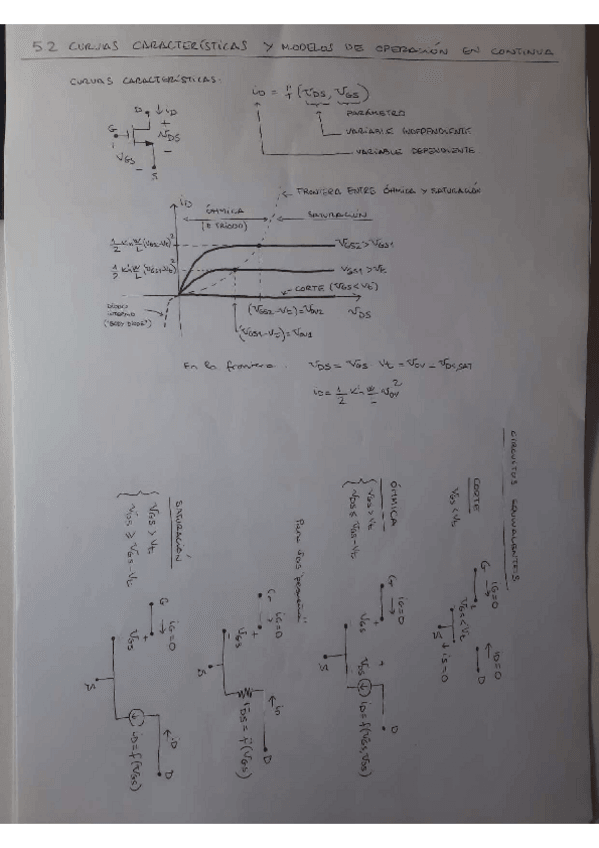 5.2 CURVAS CARACTERÍSTICAS Y MODELOS DE OPERACIÓN EN CONTINUA
CURVAS CARACTERÍSTICAS:
iD = f(VDS, VGS)
PARÁMETRO
VARIABLE INDEPENDIENTE
VARIABLE DEPENDIENTE
D ↓ iD
+
G
VDS
VGS
-
S
FRONTERA ENTRE ÓHMICA Y SATURACIÓN
iD
ÓHMICA
(o TRIODO)
SATURACIÓN
1/2 k'n W/L (VGS2-Vt)²
VGS2 > VGS1
1/2 k'n W/L (VGS1-Vt)²
VGS1 > Vt
CORTE (VGS < Vt)
VDS
DIODO
INTERNO
("BODY DIODE")
(VGS2-Vt) = VOV2
(VGS1-Vt) = VOV1
En la frontera: VDS = VGS - Vt = VOV = VDS,SAT
iD = 1/2 k'n W/L VOV²
CIRCUITOS EQUIVALENTES
CORTE
VGS < Vt
G iG=0
VGS<Vt
iD=0
D
S ↓ iS=0
ÓHMICA
VGS > Vt
VDS ≤ VGS-Vt
G iG=0
VGS
+
VDS
iD = f(VGS, VDS)
D
S
Para VDS pequeña
G iG=0
VGS
+
iD
rDS = f(VGS)
D
S
SATURACIÓN
VGS > Vt
VDS ≥ VGS-Vt
G iG=0
VGS
+
iD
iD = f(VGS)
D
S